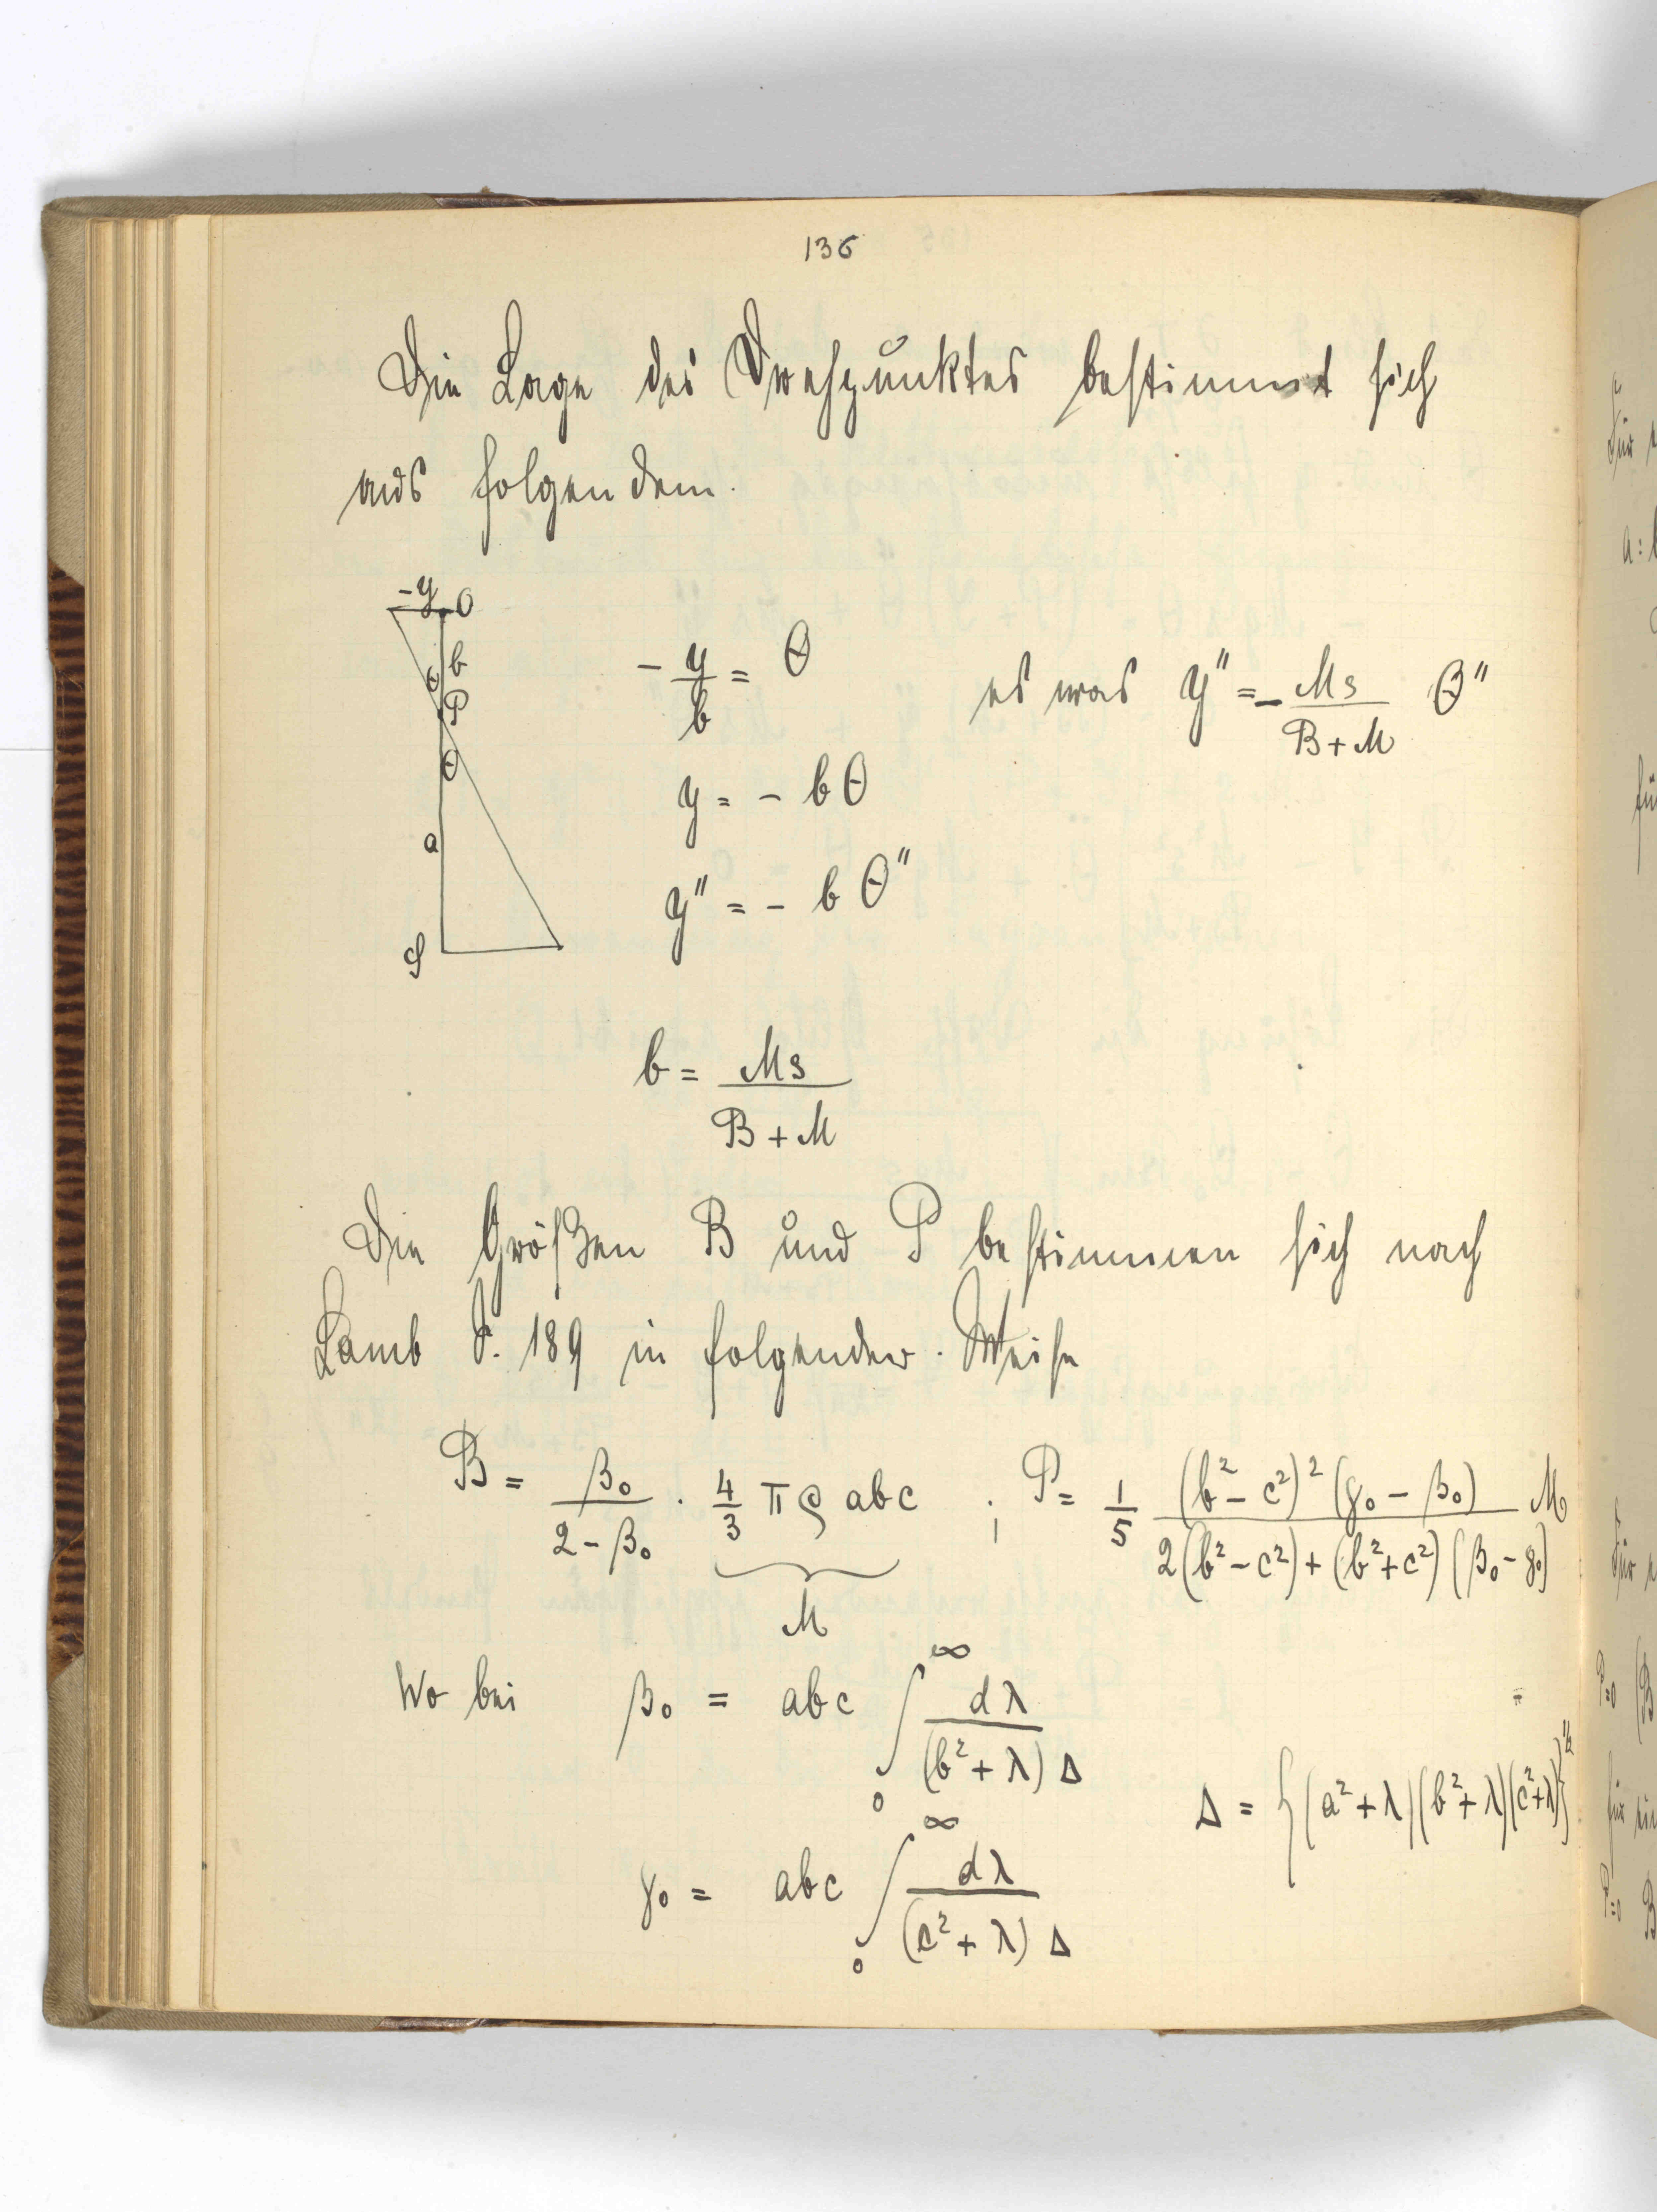 136
Die Lage des Drehpunktes bestimmt sich
aus folgendem.
-y O
b
θ
P
θ
a
S
- y/b = θ es war y″ = - Ms/(B+M) θ″
y = - bθ
y″ = - b θ″
b = Ms/(B+M)
Die Größen B und P bestimmen sich nach
Lamb S. 189 in folgender Weise
B = β₀/(2-β₀) · 4/3 π ρ abc ; P = 1/5 (b²-c²)² (γ₀-β₀)/(2(b²-c²)+(b²+c²)(β₀-γ₀)) M
M
Wo bei β₀ = abc ∫₀^∞ dλ/((b²+λ) Δ)
Δ = {(a²+λ)(b²+λ)(c²+λ)}^½
γ₀ = abc ∫₀^∞ dλ/((c²+λ) Δ)